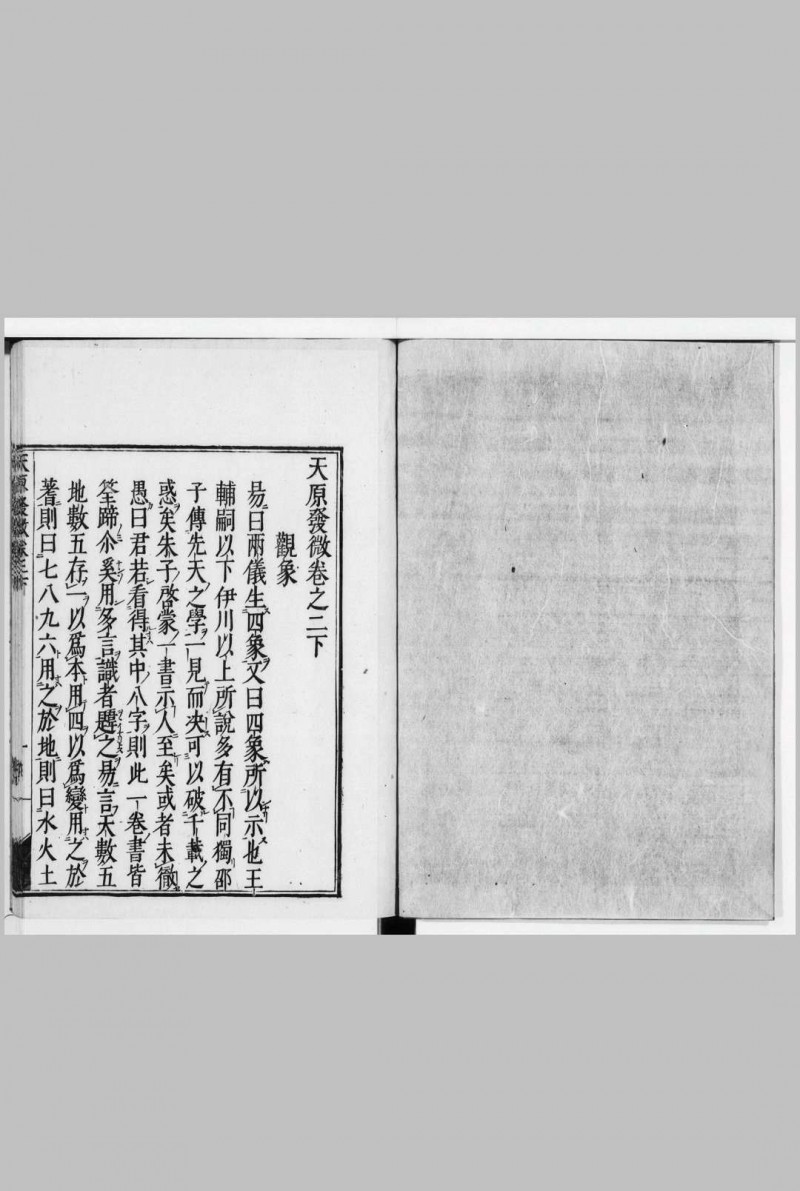 天原發微卷之二下
觀象
易曰兩儀生四象又曰四象所以示也王
輔嗣以下伊川以上所說多有不同獨邵
子傳先天之學一見而决可以破千載之
惑矣朱子啓蒙一書示人至矣或者未徹
愚曰君若看得其中八字則此一卷書皆
筌蹄尒奚用多言識者韙之易言天數五
地數五存一以爲本用四以爲變用之於
蓍則曰七八九六用之於地則曰水火土